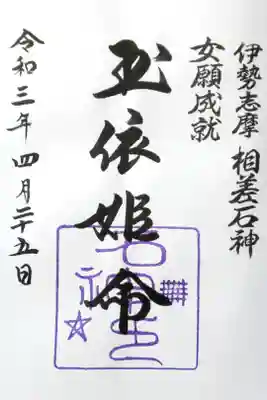 伊勢志摩 相差石神
女願成就
玉依姫命
令和三年四月二十五日
石神さん